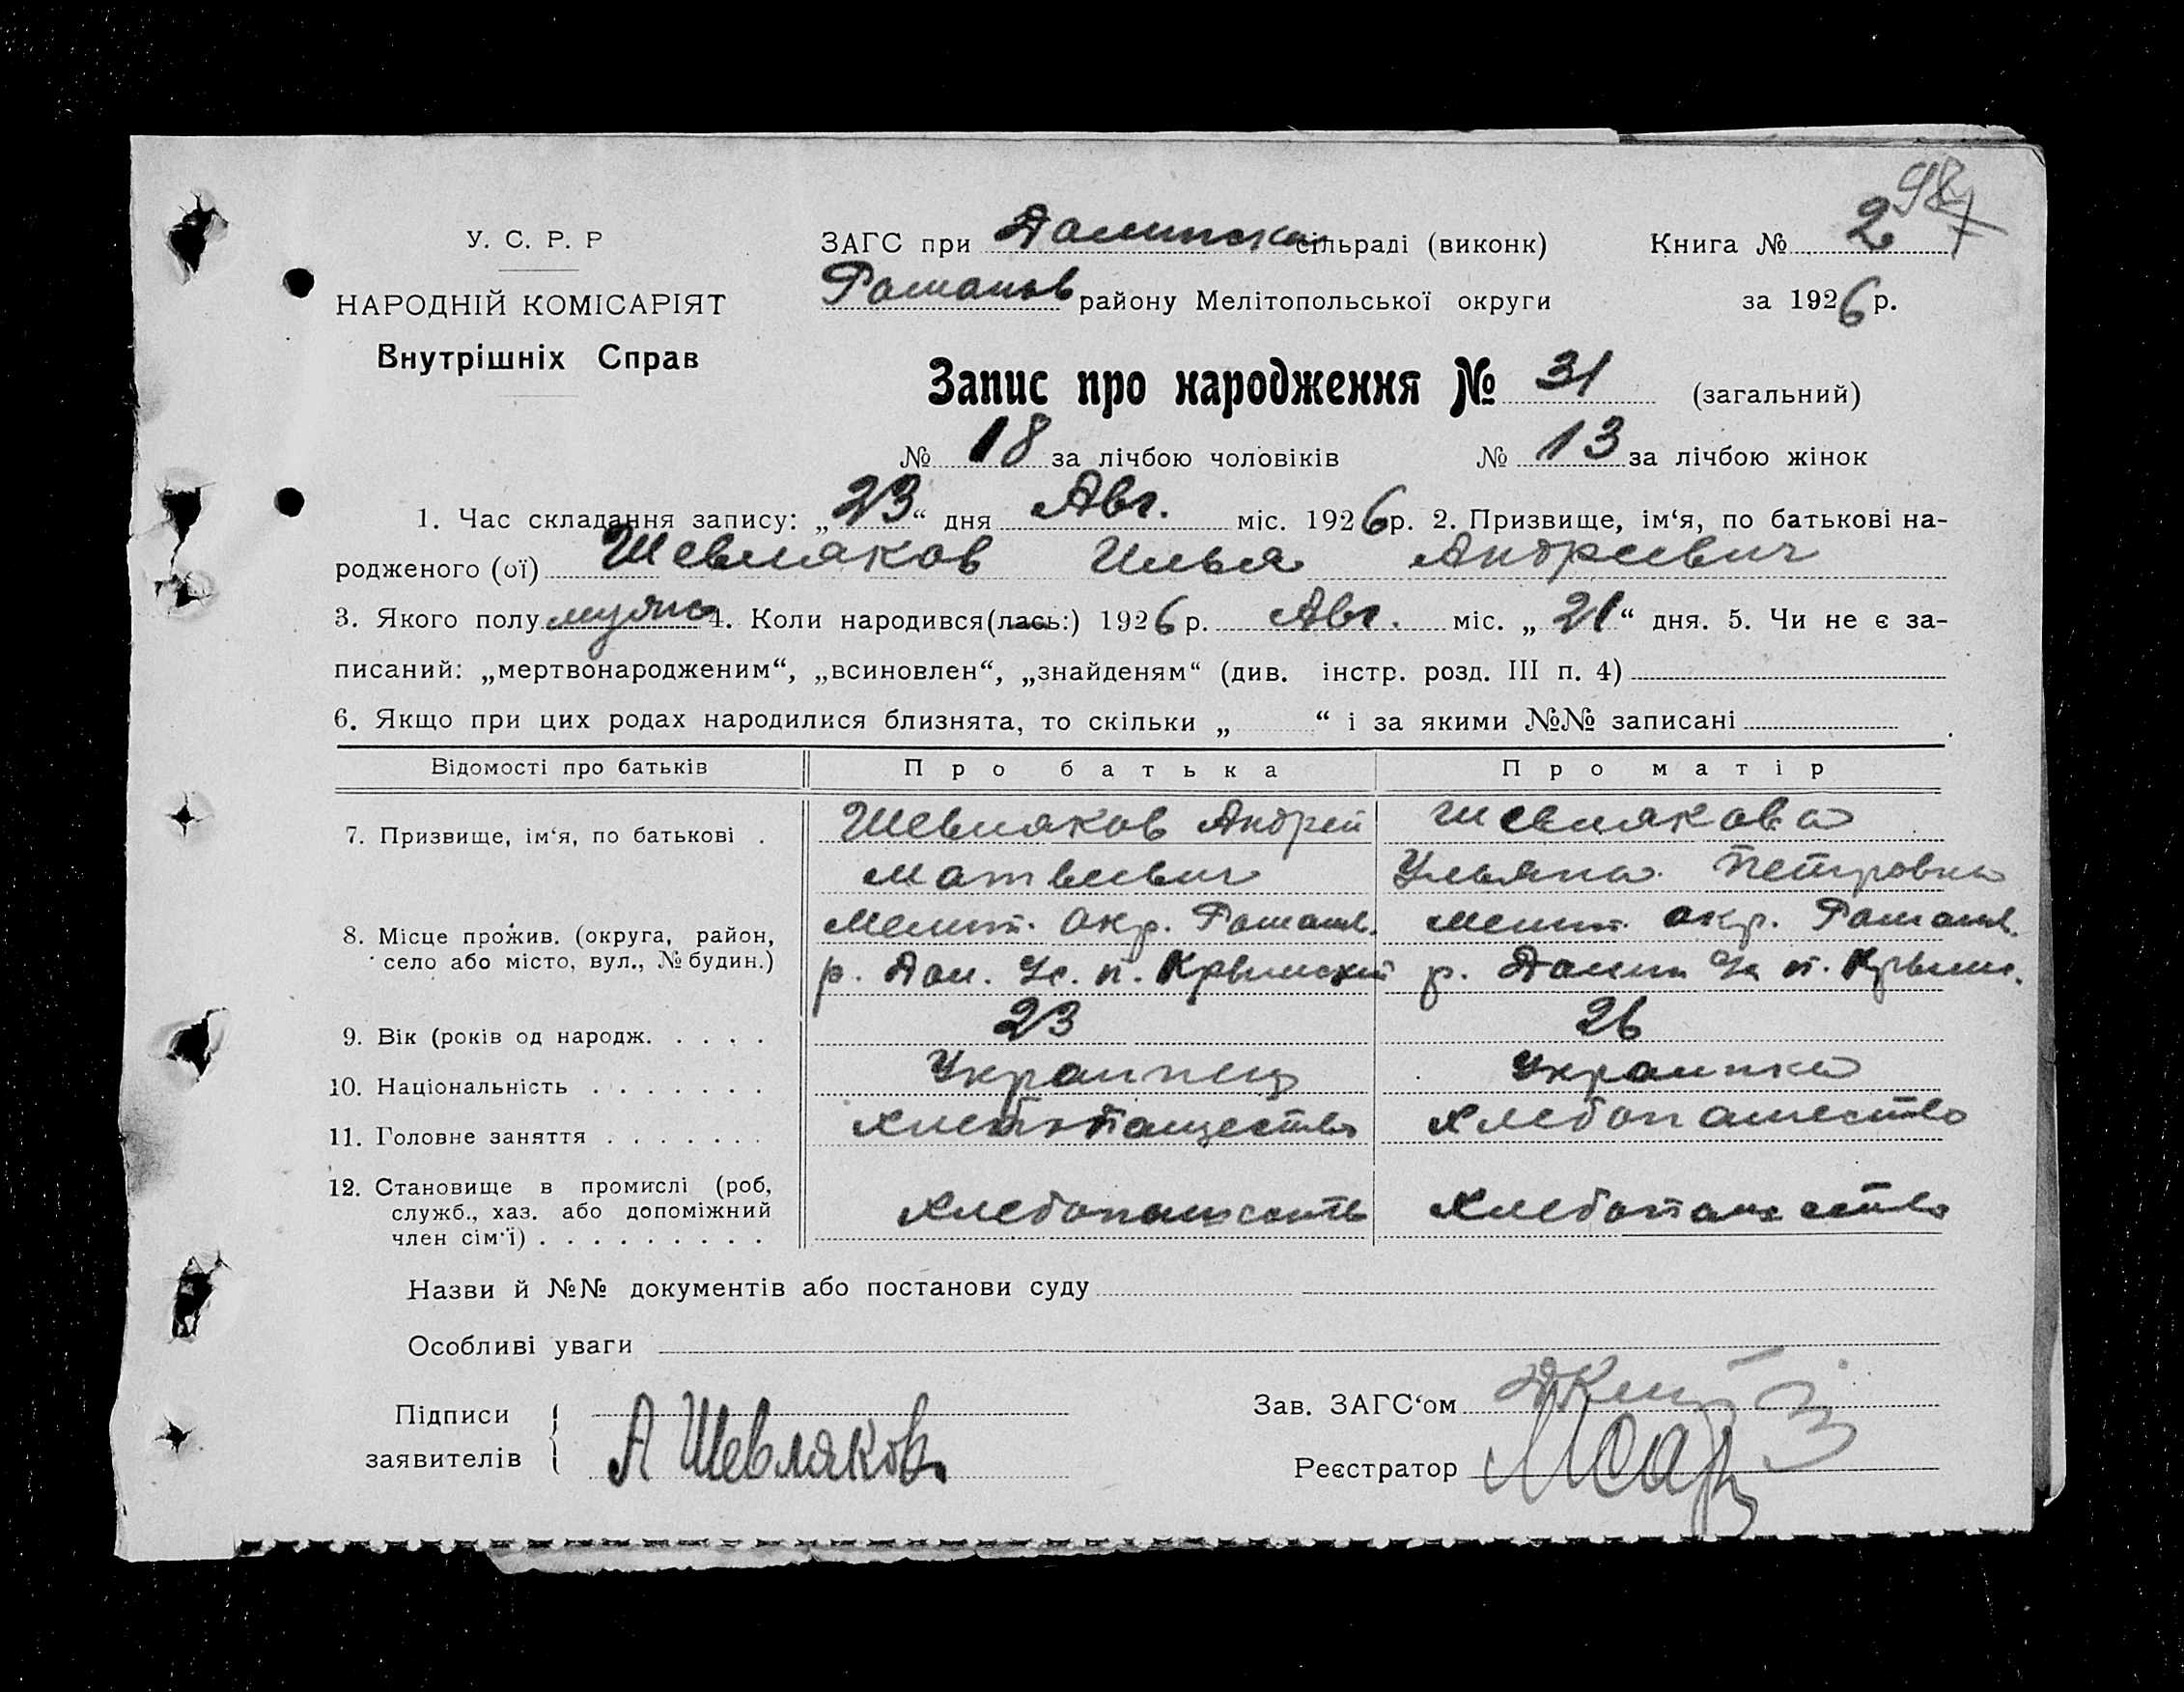 98
У. С. Р. Р
ЗАГС при Долинском сільраді (виконк) Книга № 2
НАРОДНІЙ КОМІСАРІЯТ
Роменов району Мелітопольської округи за 1926 р.
Внутрішніх Справ
Запис про народження № 31 (загальний)
№ 18 за лічбою чоловіків № 13 за лічбою жінок
1. Час складання запису: „23“ дня Авг. міс. 1926 р. 2. Призвище, ім‘я, по батькові на-
родженого (ої) Шевляков Илья Андреевич
3. Якого полу муж 4. Коли народився(лась:) 1926 р. Авг. міс. „21“ дня. 5. Чи не є за-
писаний: „мертвонародженим“, „всиновлен“, „знайденям“ (див. інстр. розд. III п. 4)
6. Якщо при цих родах народилися близнята, то скільки „ “ і за якими №№ записані
Відомості про батьків Про батька Про матір
7. Призвище, ім‘я, по батькові . Шевляков Андрей Шевлякова
Матвеевич Ульяна Петровна
8. Місце прожив. (округа, район, Мелит. окр. Роман. Мелит. окр. Роман.
село або місто, вул., № будин.) р. Дол. с. п. Крымский р. Долин п. Крым.
9. Вік (років од народж. . . . . 23 26
10. Національність . . . . . . . Украинец Украинка
11. Головне заняття . . . . . . . хлебопащество хлебопашество
12. Становище в промислі (роб,
служб., хаз. або допоміжний хлебопашество хлебопашество
член сім‘ї) . . . . . . . . .
Назви й №№ документів або постанови суду
Особливі уваги
Підписи Зав. ЗАГС‘ом
заявителів А Шевляков Реєстратор